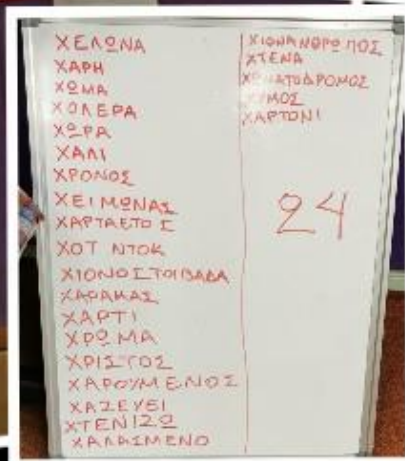 ΧΕΛΩΝΑ
ΧΑΡΗ
ΧΩΜΑ
ΧΟΛΕΡΑ
ΧΩΡΑ
ΧΑΛΙ
ΧΡΟΝΟΣ
ΧΕΙΜΩΝΑΣ
ΧΑΡΤΑΕΤΟΣ
ΧΟΤ ΝΤΟΚ
ΧΙΟΝΟΣΤΟΙΒΑΔΑ
ΧΑΡΑΚΑΣ
ΧΑΡΤΙ
ΧΡΩΜΑ
ΧΡΙΣΤΟΣ
ΧΑΡΟΥΜΕΝΟΣ
ΧΑΖΕΥΕΙ
ΧΤΕΝΙΖΩ
ΧΑΛΑΣΜΕΝΟ
ΧΙΟΝΑΝΘΡΩΠΟΣ
ΧΤΕΝΑ
ΧΩΜΑΤΟΔΡΟΜΟΣ
ΧΥΜΟΣ
ΧΑΡΤΟΝΙ
24